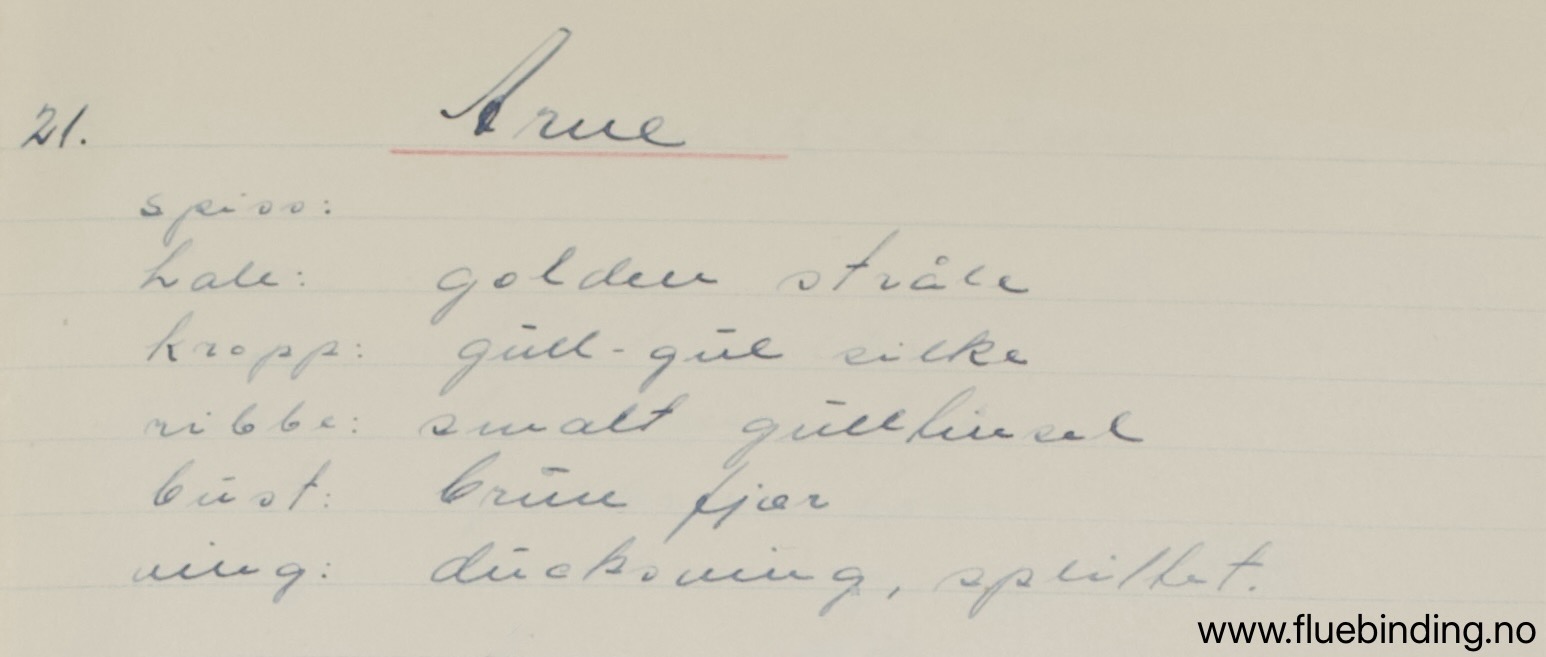 21. Arne
spiss:
hale: golden stråle
kropp: gull-gul silke
ribbe: smalt gulltinsel
bust: brun fjær
ving: ducksving, splittet.
www.fluebinding.no